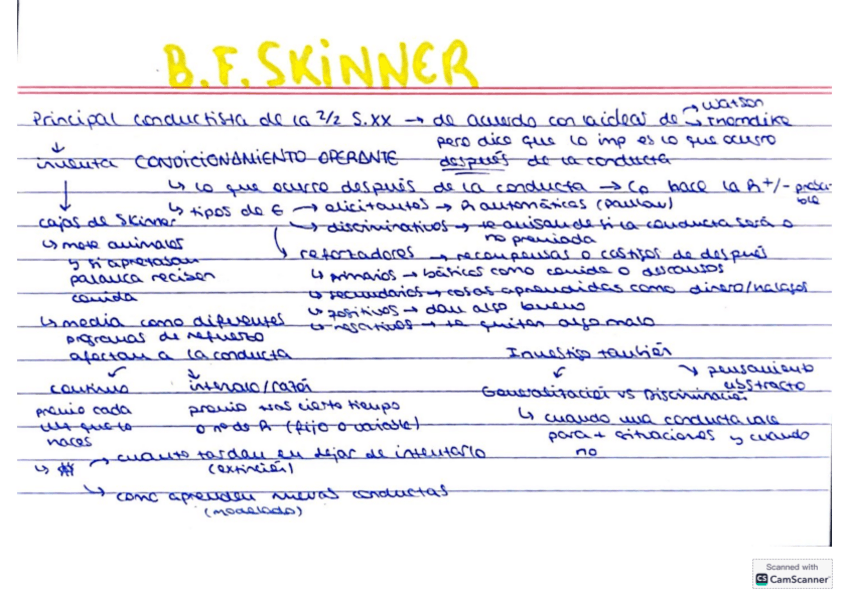 B.F. SKINNER
Principal conductista de la 2/2 S.XX → de acuerdo con la ideas de → Watson
→ Thorndike
pero dice que lo imp es lo que ocurre
inventa CONDICIONAMIENTO OPERANTE después de la conducta
↳ lo que ocurre después de la conducta → Co hace la R +/- probable
cajas de Skinner
↳ tipos de E → elicitantes → R automáticas (Pavlov)
→ discriminativos → te avisan de si la conducta será o
no premiada
↳ mete animales
y si apretaban
palanca reciben
comida
→ reforzadores → recompensas o castigos de después
↳ primarios → básicos como comida o descanso
↳ secundarios → cosas aprendidas como dinero/halagos
↳ positivos → dan algo bueno
↳ negativos → te quitan algo malo
↳ media como diferentes
programas de refuerzo
afectan a la conducta
continuo
premio cada
vez que lo
haces
intervalo/razón
premio tras cierto tiempo
o nº de R (fijo o variable)
Investigó también
→ pensamiento
abstracto
Generalización vs Discriminación
↳ cuando una conducta vale
para + situaciones y cuando
no
↳ # → cuanto tardan en dejar de intentarlo
(extinción)
↳ como aprenden nuevas conductas
(modelado)
Scanned with
CS CamScanner